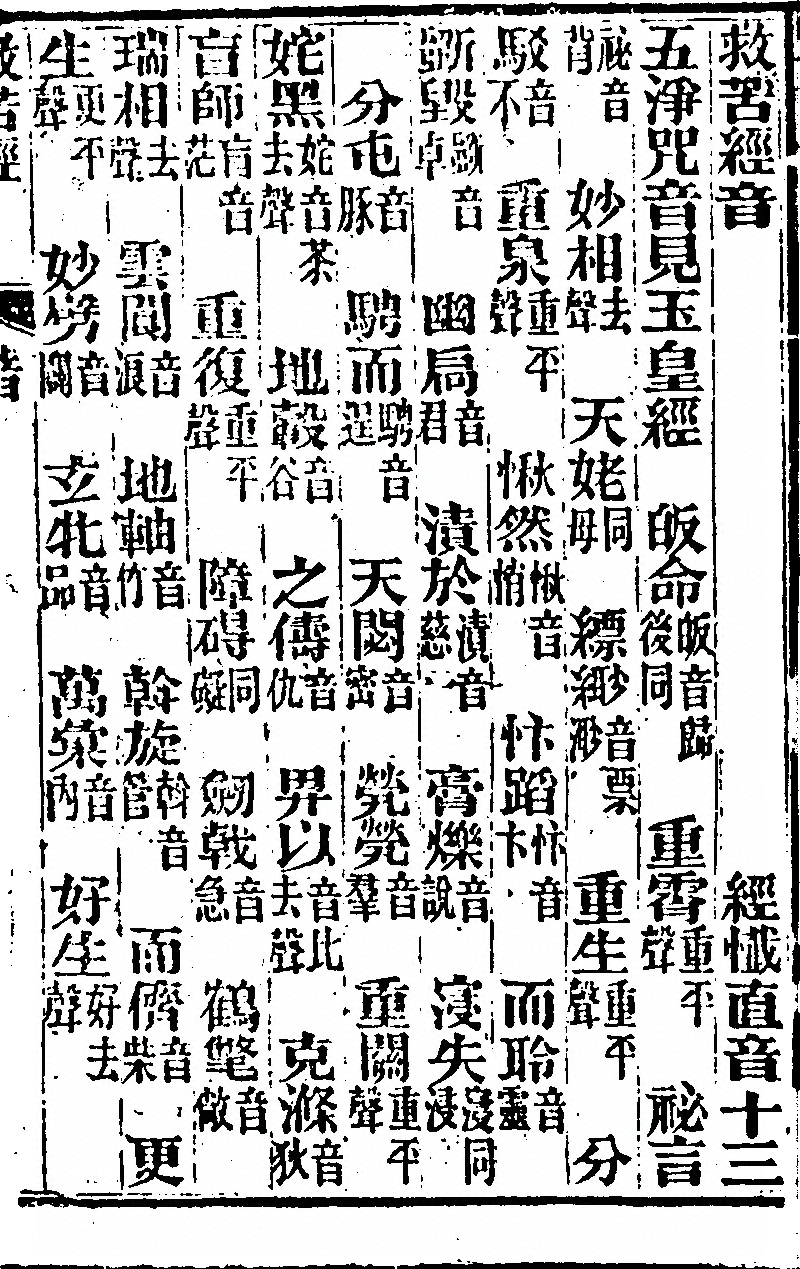 救苦經音　經懺直音十三
五淨咒音見玉皇經　皈命皈音歸後同　重霄重平聲　祕言
祕音背　妙相去聲　天姥同母　縹緲音票渺　重生重平聲　分
駁音不　重泉重平聲　愀然愀音悄　忭蹈忭音卞　而聆音靈
斲毀斲音卓　幽局音君　漬於漬音慈　膏爍音說　寖失寖同浸
分屯音豚　騁而騁音逞　天閟音密　煢煢音羣　重關重平聲
姹黑姹音茶去聲　地轂音谷　之儔音仇　畀以音比去聲　克滌音狄
盲師盲音茫　重復重平聲　障碍同礙　劒戟音急　鶴氅音敞
瑞相去聲　雲閬音浪　地軸音竹　斡旋斡音管　而儕音柴　更
生更平聲　妙劳音闊　玄牝音品　萬彙音內　好生好去聲